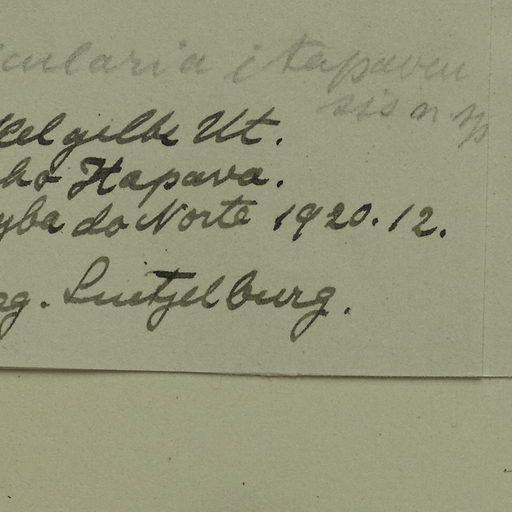 icularia itapaven
sis n. sp
kelgelbe Ut.
cho Itapava.
yba do Norte 1920.12.
eg. Luetzelburg.